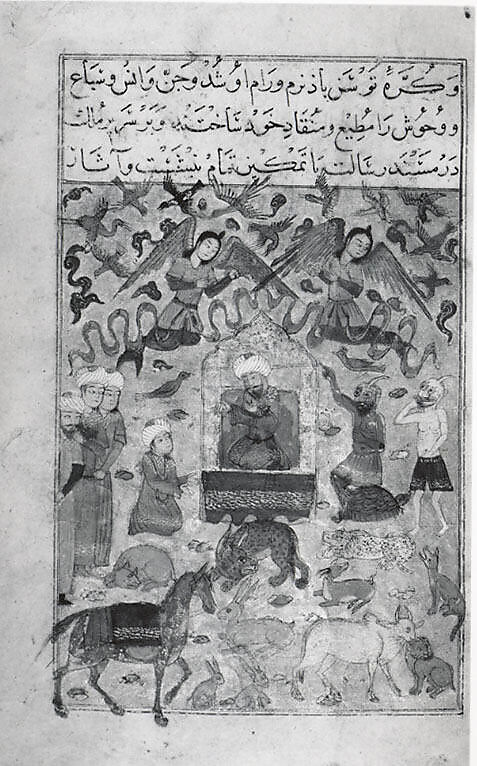 و کرّهٔ توسن باذ نرم و رام او شد و جنّ و انس و سباع
و وحوش را مطیع و منقاد خود ساختند و بر سریر ممالک
در مسند رسالت با تمکین تمام بنشست و آثار